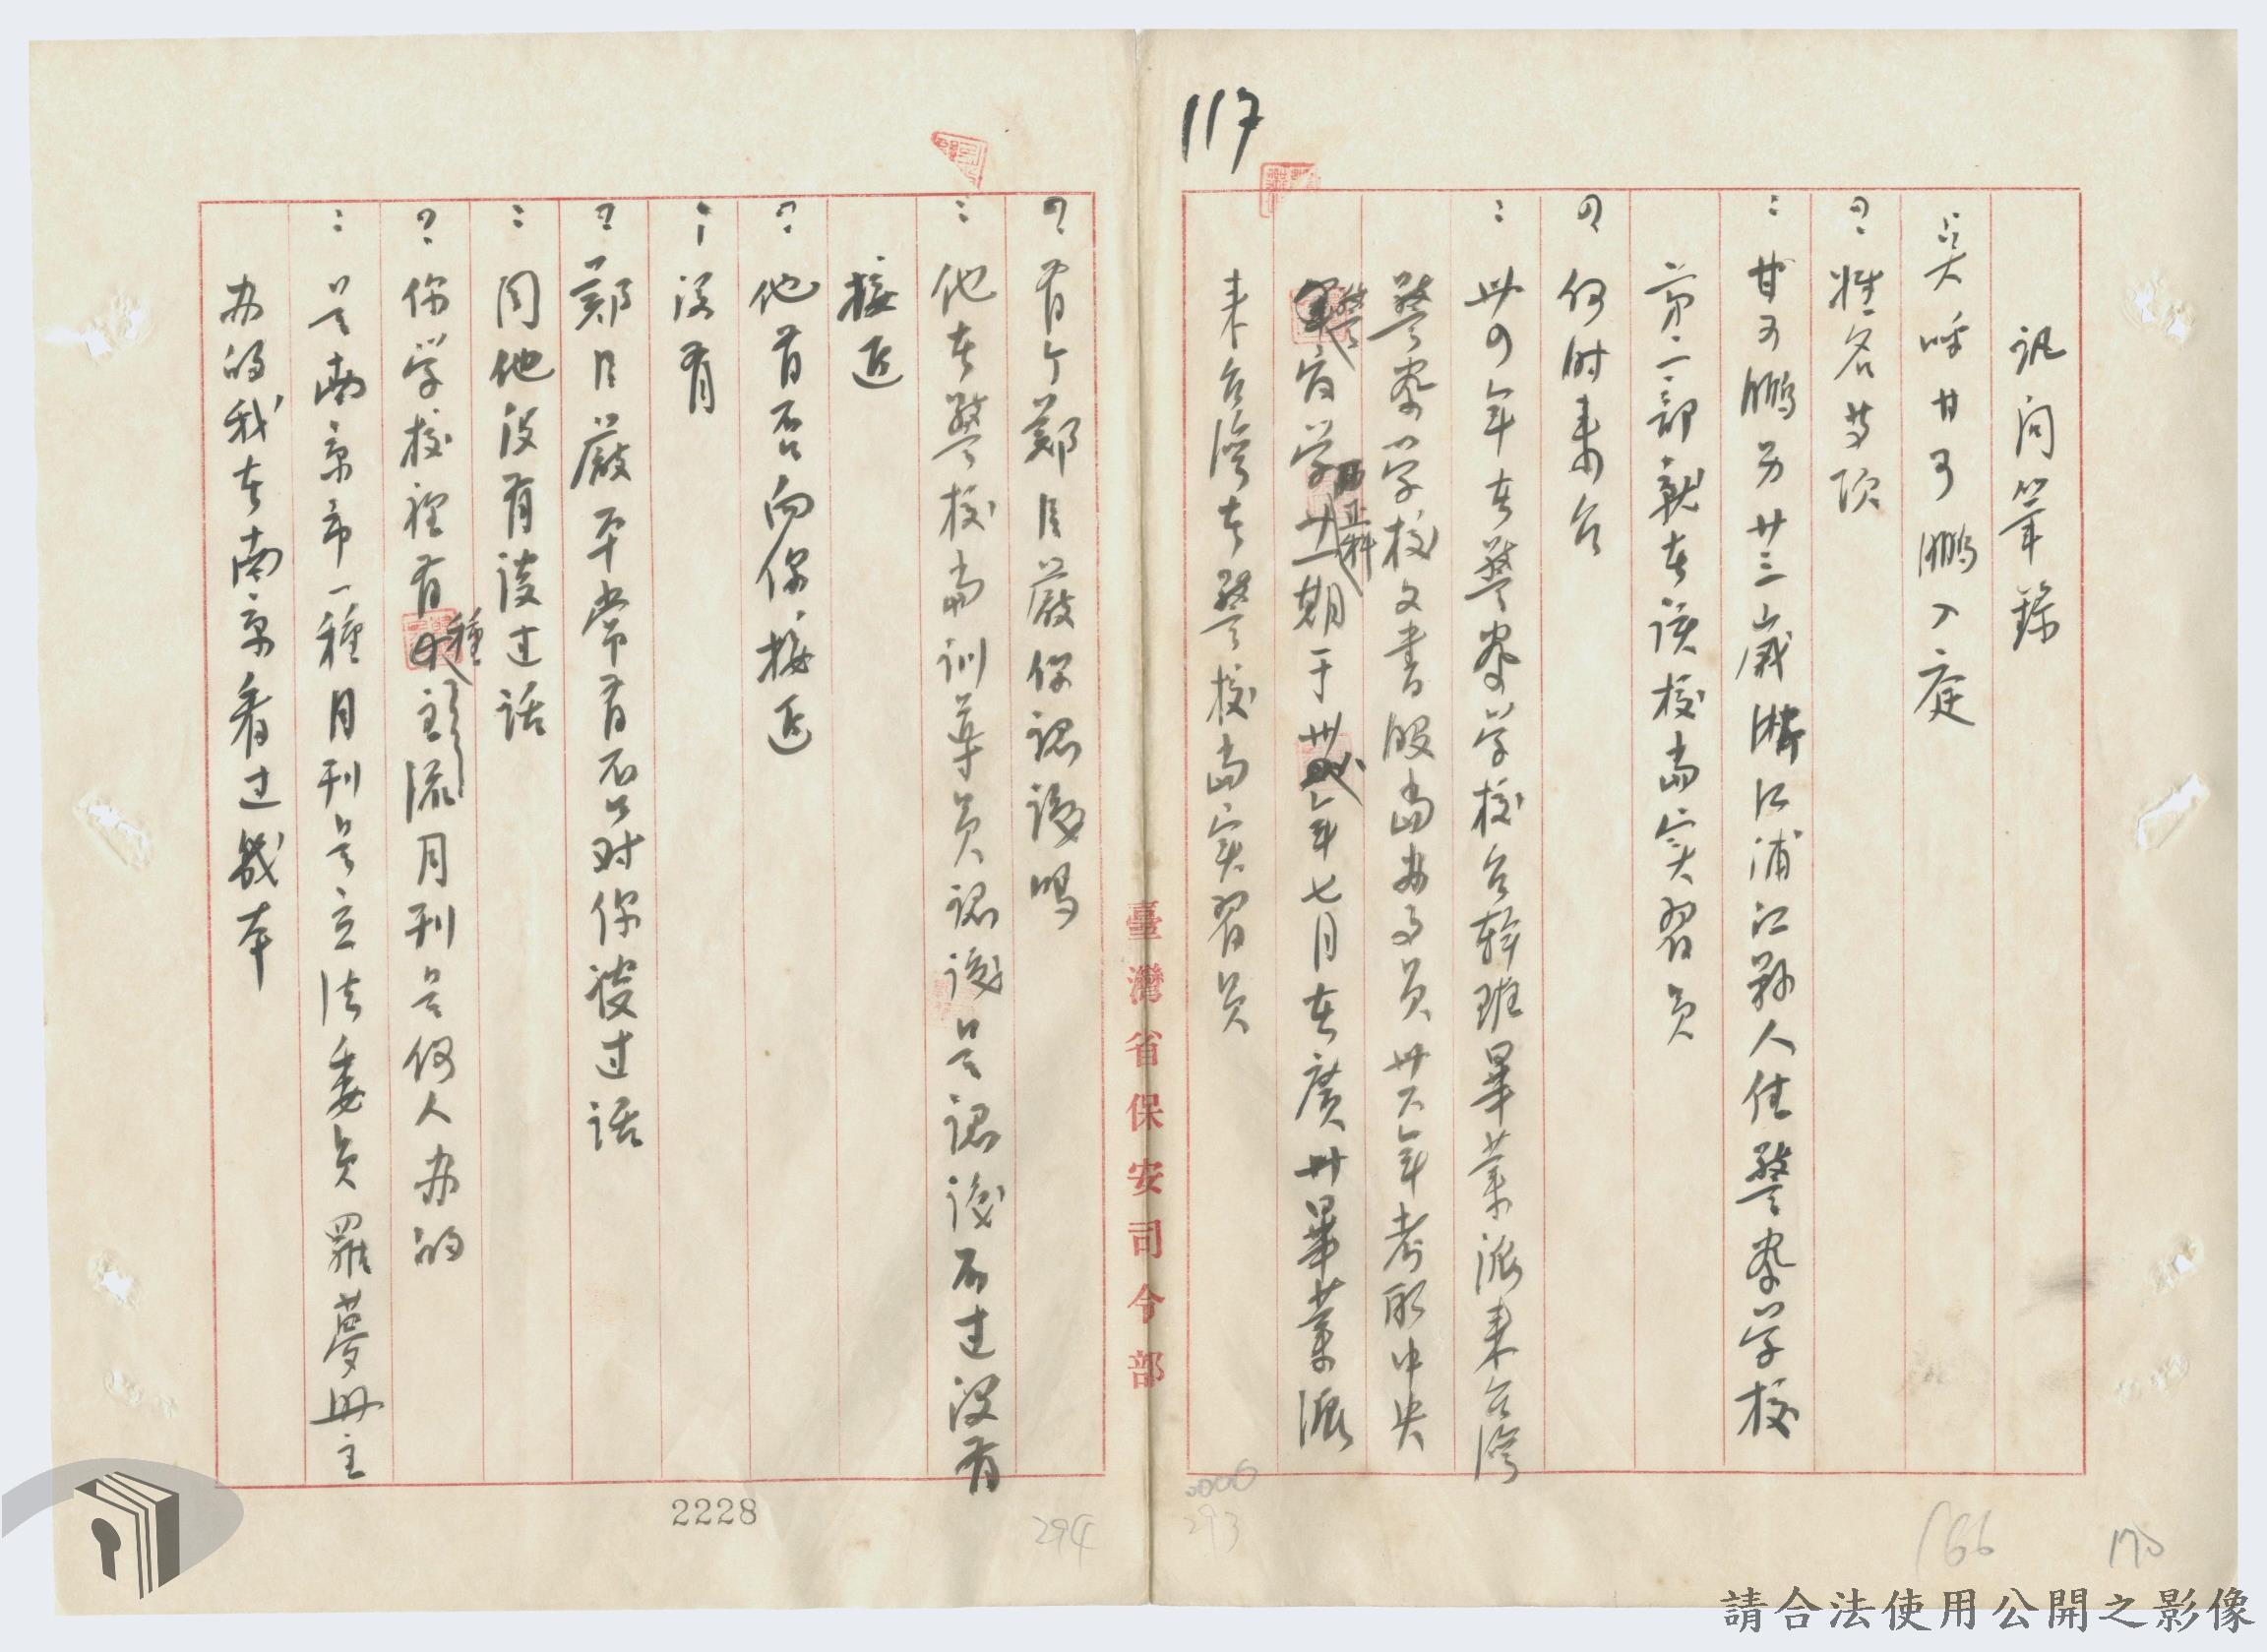 117
訊問筆錄
点呼甘可鵬入庭
？姓名等項
：甘可鵬男廿三歲浙江浦江縣人住警察学校
第二部就在該校當实習員
？何时來台
：卅四年在警察学校台幹班畢業派來台湾
警察学校文書股當办事員卅六年考取中央
警官学校正科廿一期于卅八年七月在廣州畢業派
来台湾在警校當实習員
？有个鄭臣嚴你認識嗎
：他在警校當訓導員認識是認識不过没有
接近
？他有否向你接近
：没有
？鄭臣嚴平常有否对你談过话
：同他没有談过话
？你学校裡有種主流月刊是何人办的
：是南京市一種月刊是立法委員羅夢册主
办的我在南京看过幾本
臺灣省保安司令部
2228
294
293
166
170
請合法使用公開之影像